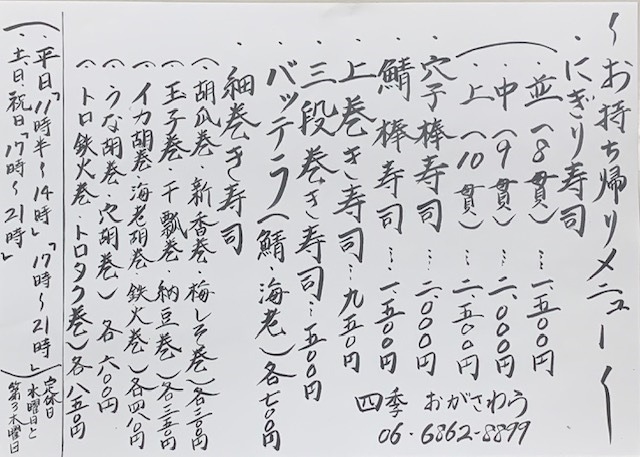 〜お持ち帰りメニュー〜
・にぎり寿司
・並（8貫）…一、五〇〇円
・中（9貫）…二、〇〇〇円
・上（10貫）…二、五〇〇円
・穴子棒寿司…二、〇〇〇円
・鯖棒寿司…一、五〇〇円
・上巻き寿司…九五〇円
・三段巻き寿司…一、五〇〇円
・バッテラ（鯖・海老）各七〇〇円
・細巻き寿司
（胡瓜巻・新香巻・梅しそ巻）各三〇〇円
（玉子巻・干瓢巻・納豆巻）各三五〇円
（イカ胡巻・海老胡巻・鉄火巻）各四八〇円
（うな胡巻・穴胡巻）各六〇〇円
（トロ鉄火巻・トロタク巻）各八五〇円
四季 おがさわら
06-6862-8899
・平日「11時半〜14時」「17時〜21時」
・土・日・祝日「17時〜21時」
定休日
水曜日と
第3木曜日